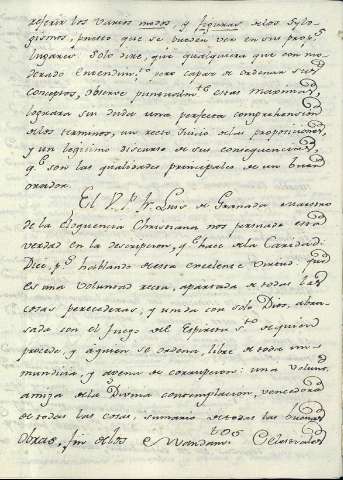 referir los varios modos, y figuras de los Sylo-
gismos, puesto que se pueden ver en sus prop.s
lugares. Solo dire, que qualquiera que con mo-
derado Entendim.to sera capaz de ordenar sus
conceptos, observe puntualm.te estas maximas,
lograra sin duda una perfecta comprehension
de los terminos, un recto Juicio de las proposiciones,
y un legitimo discurso de sus consequencias,
q.e son las qualidades principales de un buen
orador.
El V. P. Fr. Luis de Granada maestro
de la Eloquencia Christiana nos persuade esta
verdad en la descripcion, q.e hace de la Caridad:
Dice, p.s hablando de esta excelente virtud, que
es una voluntad recta, apartada de todas las
cosas perecederas, y unida con solo Dios, abra-
sada con el fuego del Espiritu S.to de quien
procede, y á quien se ordena, libre de toda in-
mundicia, y agena de corrupcion: una volunt.d
amiga de la Divina contemplacion, vencedora
de todas las cosas, sumario de todas las buenas
obras, fin de los Mandam.tos Celestiales